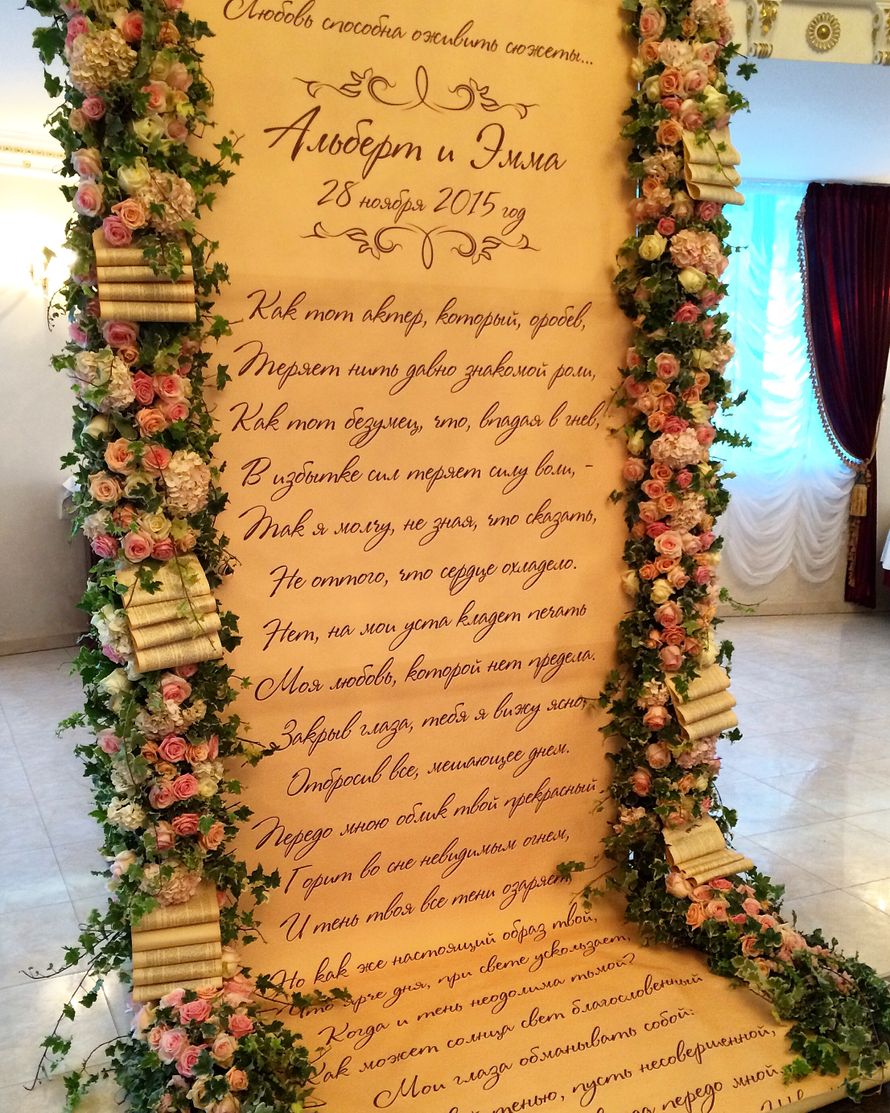 Любовь способна оживить сюжеты...
Альберт и Эмма
28 ноября 2015 год
Как тот актер, который, оробев,
Теряет нить давно знакомой роли,
Как тот безумец, что, впадая в гнев,
В избытке сил теряет силу воли, -
Так я молчу, не зная, что сказать,
Не оттого, что сердце охладело.
Нет, на мои уста кладет печать
Моя любовь, которой нет предела.
Закрыв глаза, тебя я вижу ясно,
Отбросив все, мешающее днем.
Передо мною облик твой прекрасный
Горит во сне невидимым огнем,
И тень твоя все тени озаряет,
Но как же настоящий образ твой,
Что ярче дня, при свете ускользает,
Когда и тень неодолима тьмой?
Как может солнца свет благословенный
Мои глаза обманывать собой:
тенью, пусть несовершенной,
передо мной.